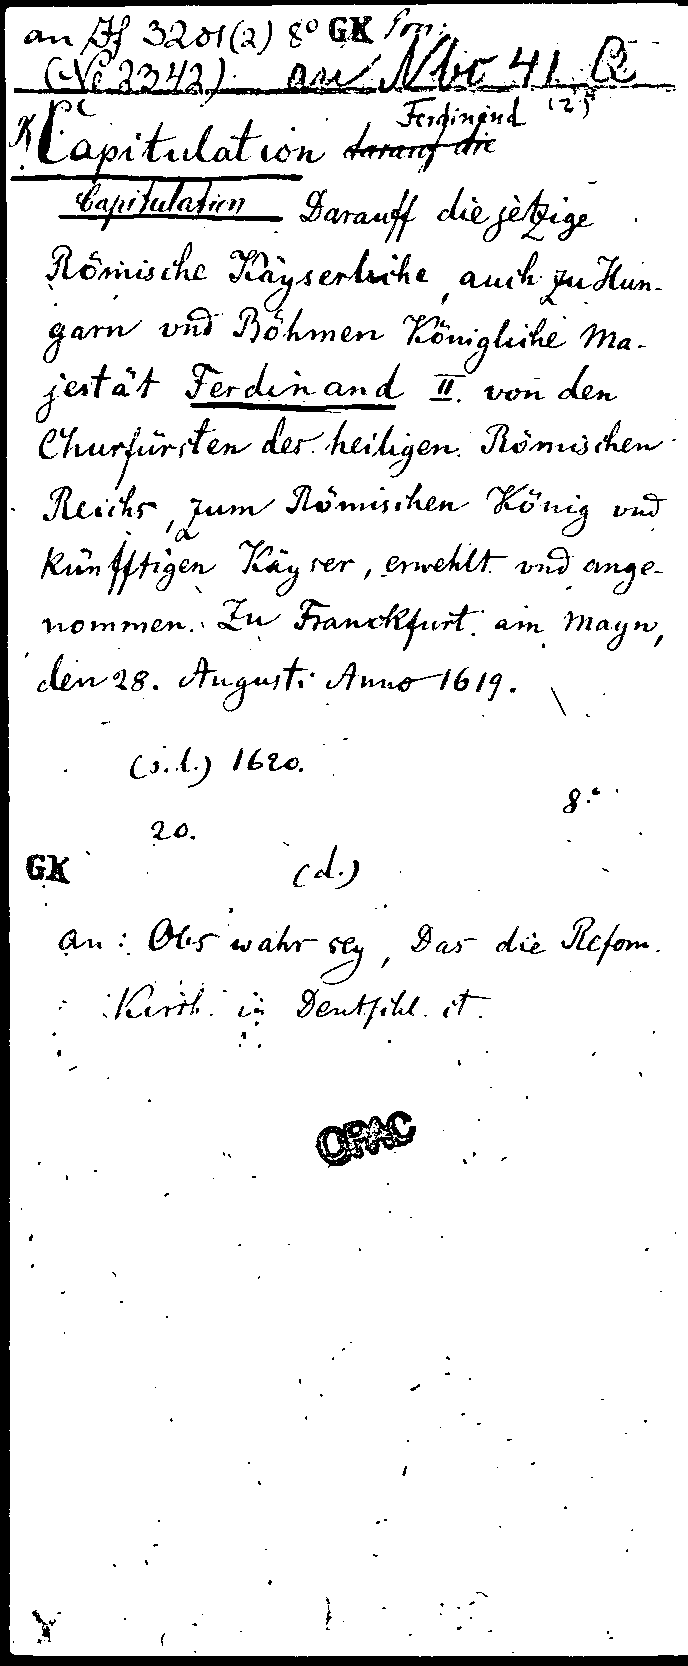 an Zf 3201(2) 8° GK
(Nc 2342) an Nbc 41
Ferdinand (2)
Capitulation darauf die
Capitulation Darauff die jetzige
Römische Käyserliche, auch zu Hun-
garn vnd Böhmen Königliche Ma-
jestät Ferdinand II. von den
Churfürsten des heiligen Römischen
Reichs, zum Römischen König vnd
künfftigen Käyser, erwehlt vnd ange-
nommen. Zu Franckfurt am Mayn,
den 28. Augusti Anno 1619.
(s.l.) 1620.
8.°
20.
GK (d.)
an: Obs wahr sey, Das die Reform.
Kirch. in Deutschl. et.
OPAC